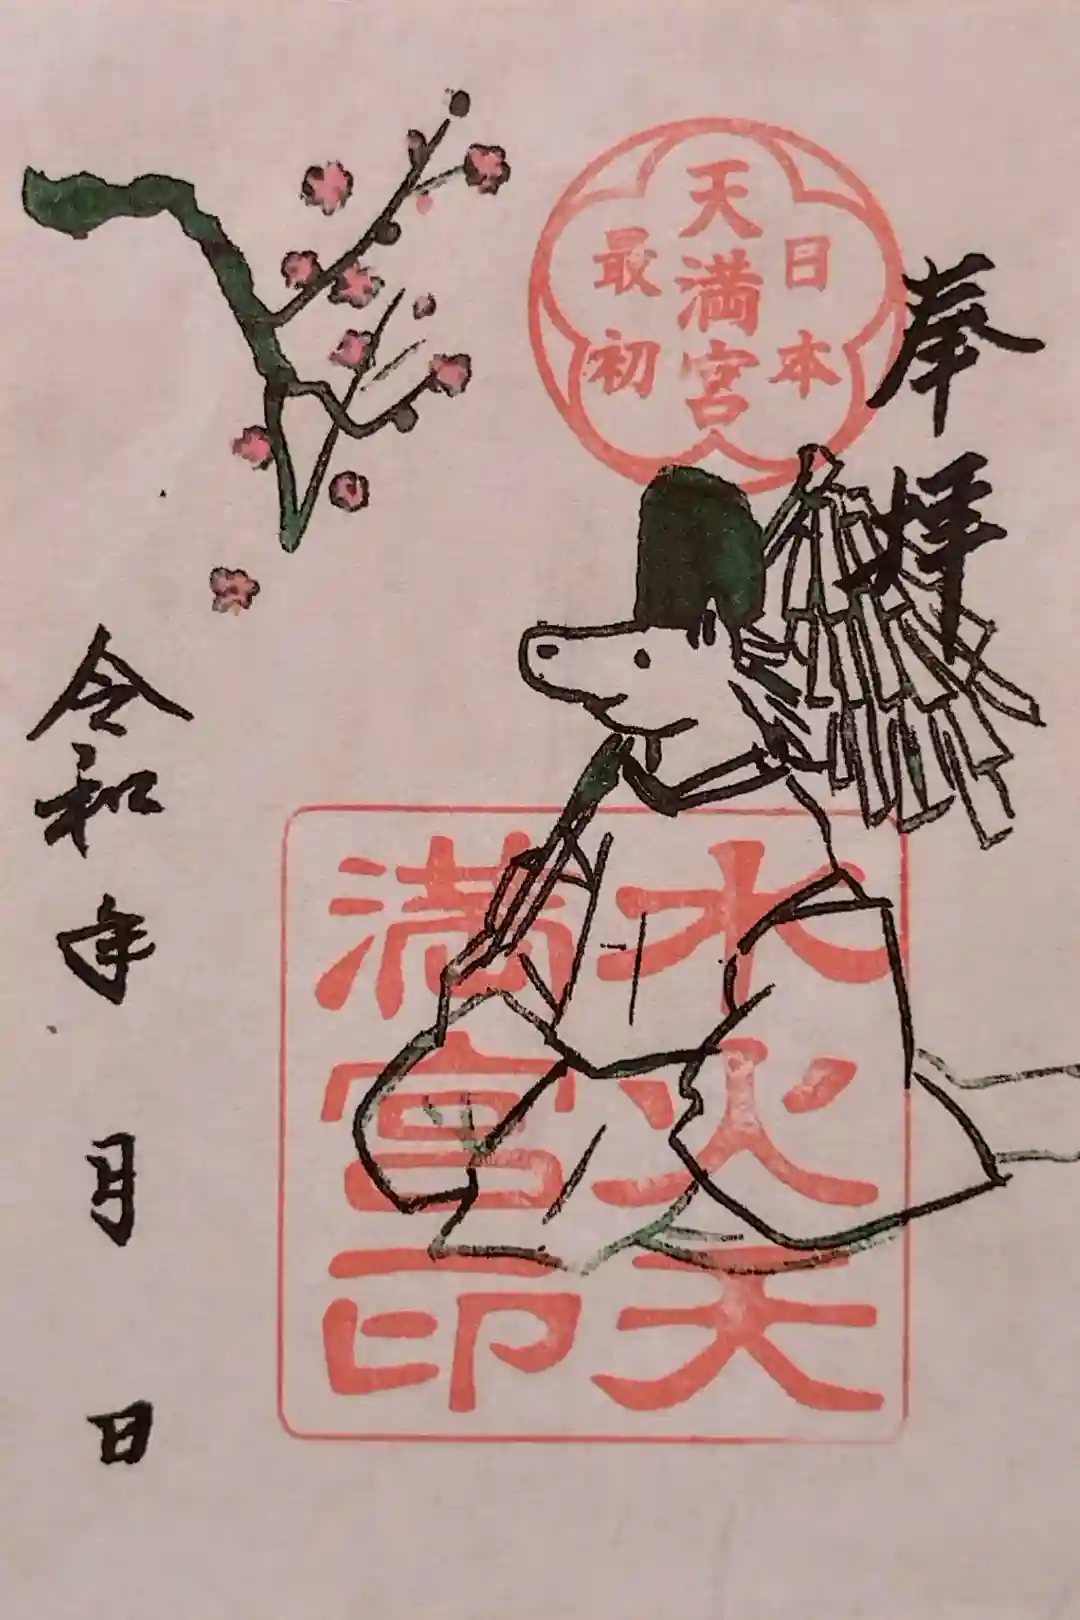 奉拝
日本
天満宮
最初
水火天
満宮印
令和 年 月 日